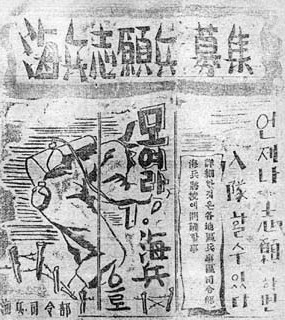 海兵志願兵 募集
언제나 志願하면
入隊할수있다
詳細한것은各地區兵事區司令部
海兵將校에問議할事
모여라
海兵으로
海兵司令部